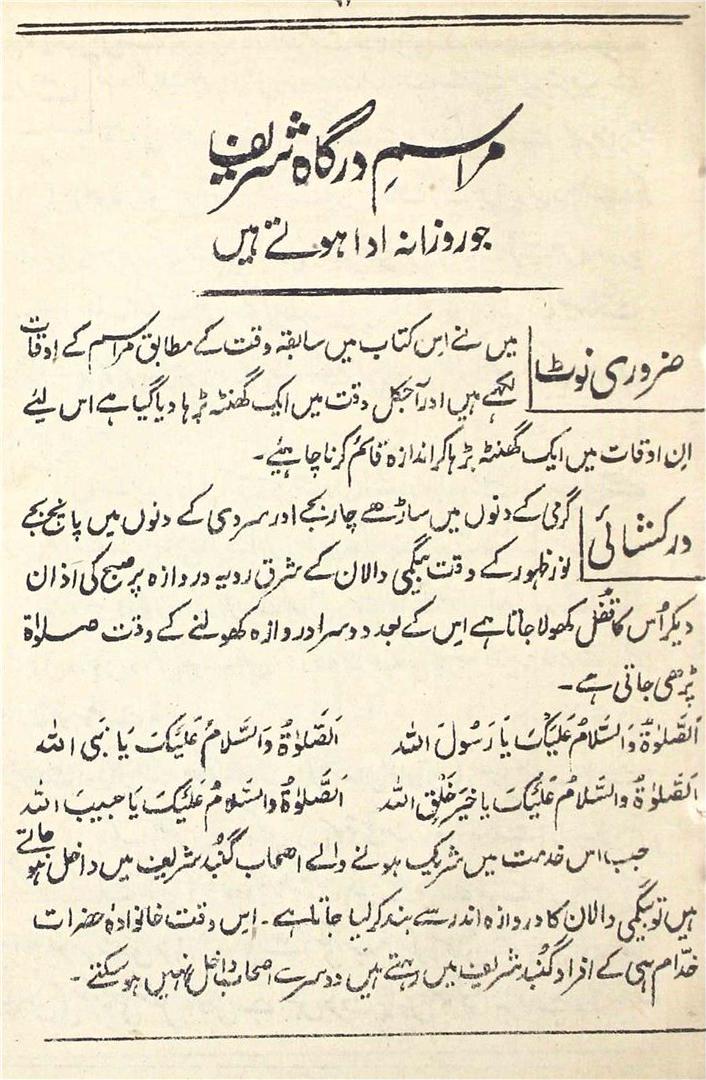 مراسمِ درگاہ شریف
جو روزانہ ادا ہوتے ہیں
ضروری نوٹ میں نے اس کتاب میں سابقہ وقت کے مطابق مراسم کے اوقات
لکھے ہیں اور آجکل وقت میں ایک گھنٹہ بڑہا دیا گیا ہے اس لیئے
اِن اوقات میں ایک گھنٹہ بڑہا کر اندازہ قائم کرنا چاہیئے۔
در کشائی گرمی کے دنوں میں ساڑھے چار بجے اور سردی کے دنوں میں پانچ بجے
نور ظہور کے وقت بیگمی دالان کے شرق رویہ دروازہ پر صبح کی اذان
دیکر اُس کا قفل کھولا جاتا ہے اس کے بعد دوسرا دروازہ کھولنے کے وقت صلواۃ
پڑھی جاتی ہے۔
اَلصَّلوٰۃُ وَالسَّلَامُ عَلَیْکَ یَا رَسُولَ اللہ اَلصَّلوٰۃُ وَالسَّلَامُ عَلَیْکَ یَا نَبِی اللہ
اَلصَّلوٰۃُ وَالسَّلَامُ عَلَیْکَ یا خَیْرِ خَلْقِ اللہ اَلصَّلوٰۃُ وَالسَّلَامُ عَلَیْکَ یَا حبیبَ اللہ
جب اس خدمت میں شریک ہونے والے اصحاب گنبد شریف میں داخل ہو جاتے
ہیں تو بیگمی دالان کا دروازہ اندر سے بند کر لیا جاتا ہے۔ اس وقت خانوادۂ حضرات
خدّام ہی کے افراد گنبد شریف میں رہتے ہیں دوسرے اصحاب داخل نہیں ہو سکتے۔